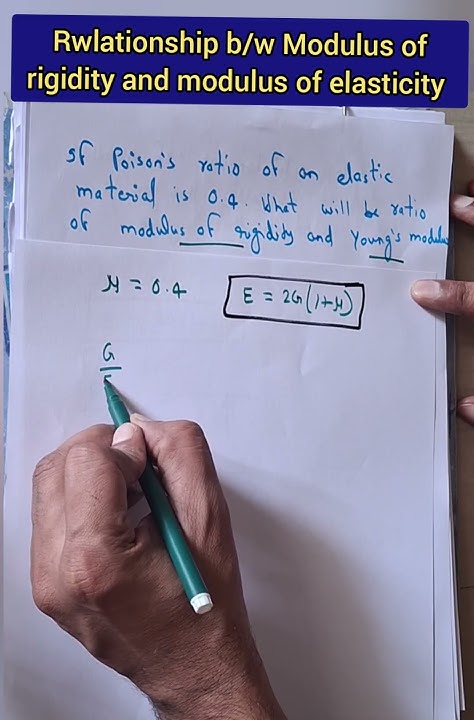 Rwlationship b/w Modulus of
rigidity and modulus of elasticity
If Poison's ratio of an elastic
material is 0.4. What will be ratio
of modulus of rigidity and Young's modulus
μ = 0.4
E = 2G(1+μ)
G